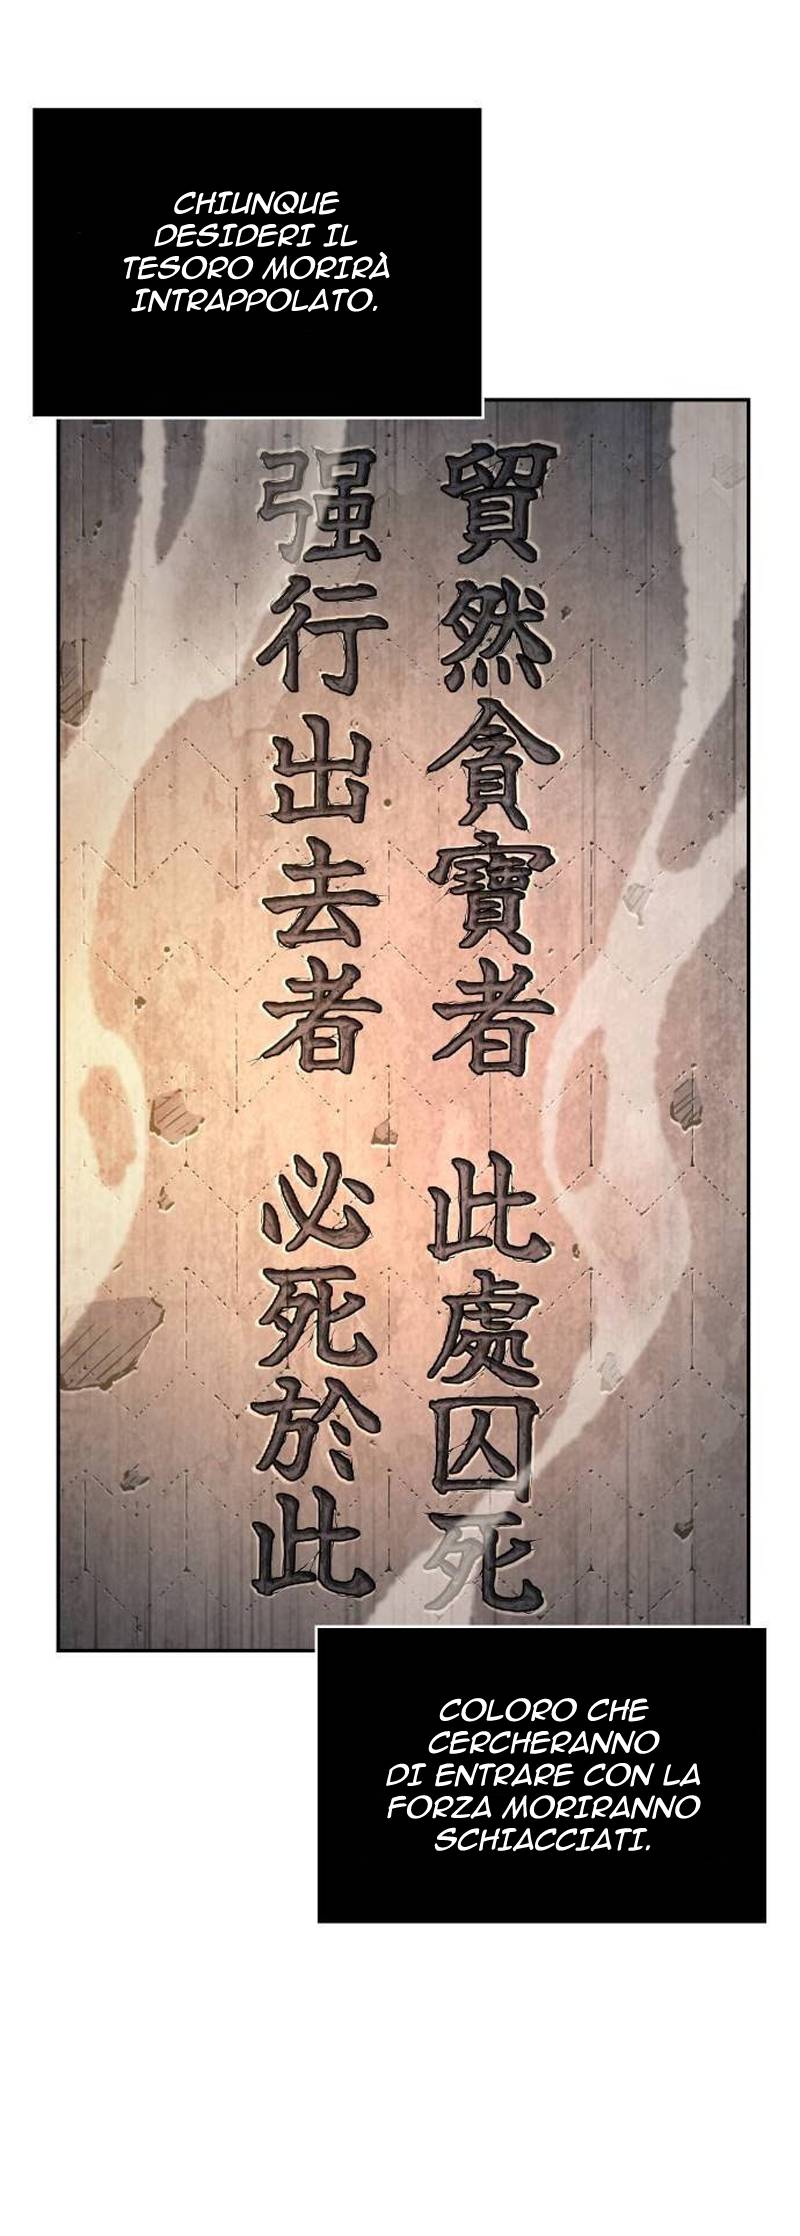 CHIUNQUE
DESIDERI IL
TESORO MORIRÀ
INTRAPPOLATO.
貿然貪寶者 此處囚死
强行出去者 必死於此
COLORO CHE
CERCHERANNO
DI ENTRARE CON LA
FORZA MORIRANNO
SCHIACCIATI.